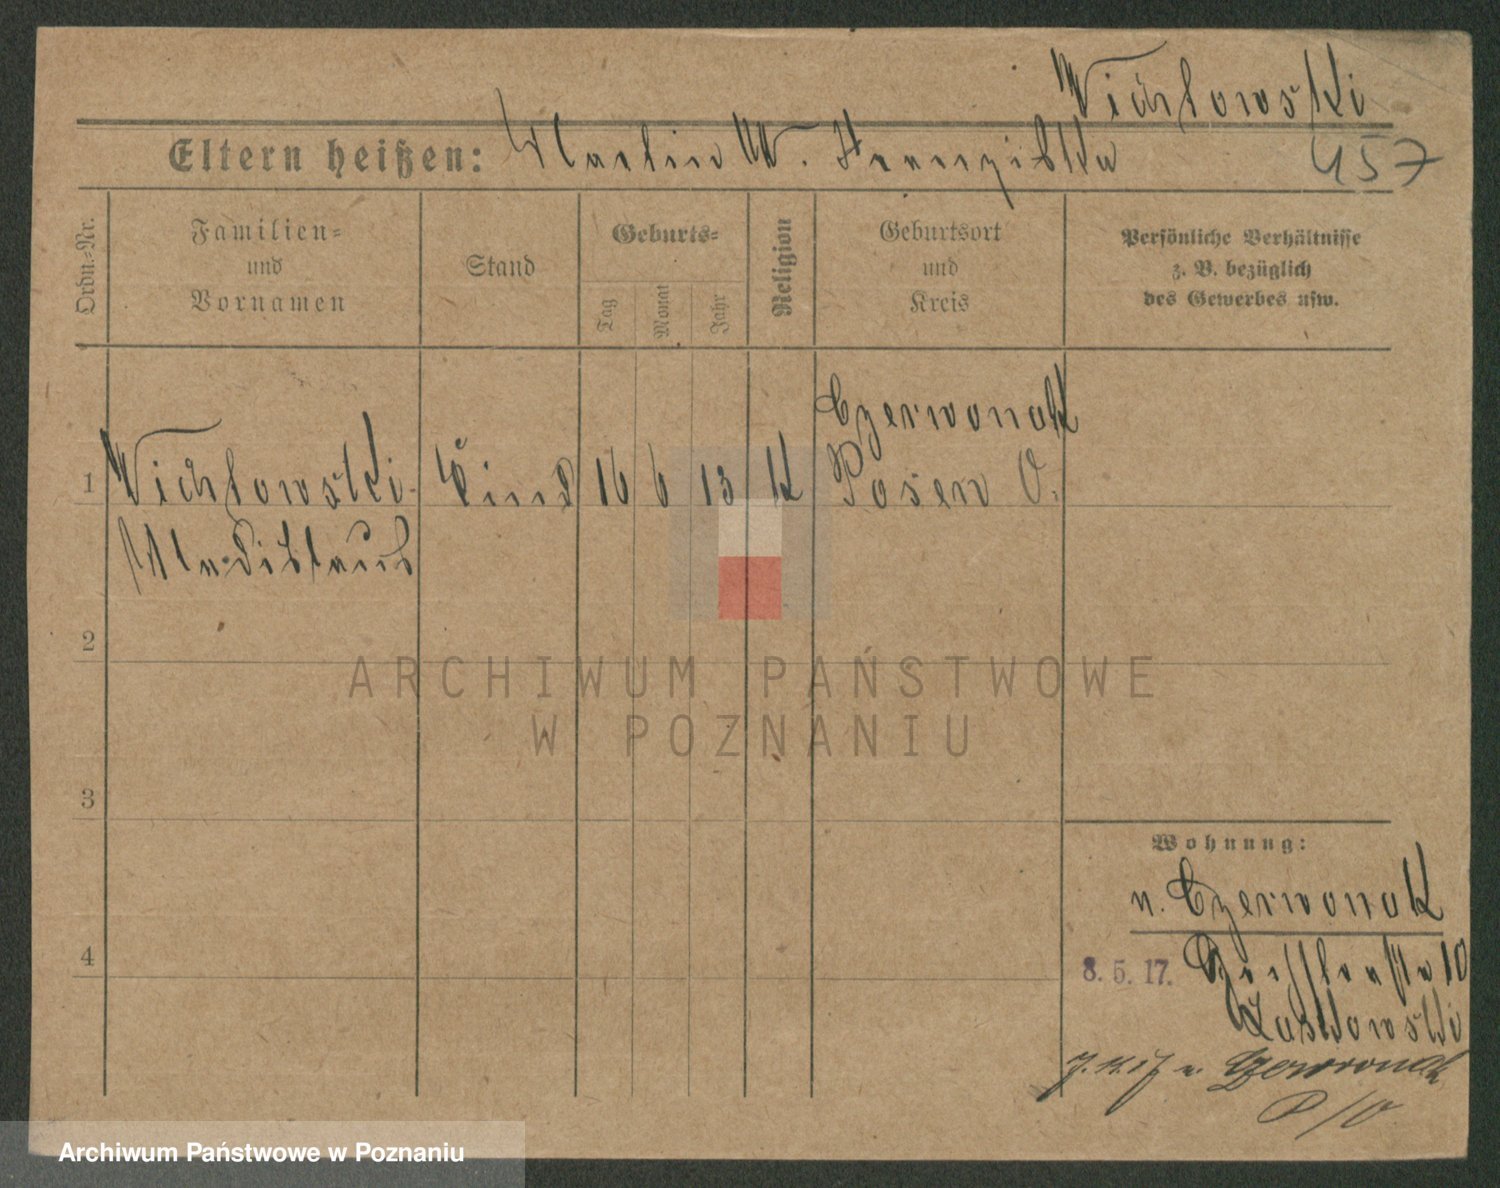 Wichlowski
Eltern heißen: Martin W. Franziska
457
Ordn.-Nr.
Familien-
und
Vornamen
Stand
Geburts-
Tag
Monat
Jahr
Religion
Geburtsort
und
Kreis
Persönliche Verhältnisse
z. B. bezüglich
des Gewerbes usw.
Czerwonak
1 Wichlowski Kind 16 6 13 K Posen O.
Wladislaus
2
ARCHIWUM PAŃSTWOWE
W POZNANIU
3
Wohnung:
n. Czerwonak
4
8. 5. 17. 10
n. Czerwonak
P/O
Archiwum Państwowe w Poznaniu